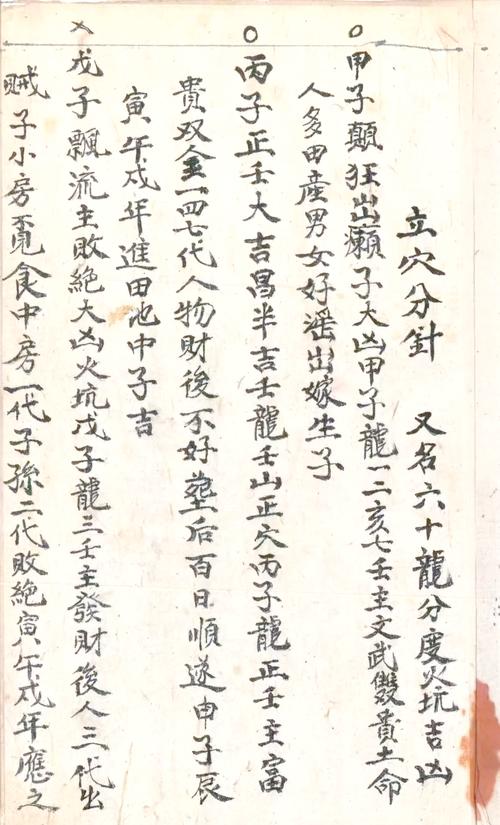 立穴分針　又名六十龍分度火坑吉凶
○甲子顛狂出癩子大凶甲子龍一二亥七壬主文武雙貴土命
人多田產男女好謠出嫁生子
○丙子正壬大吉昌半吉壬龍壬山正穴丙子龍正壬主富
貴双全一四七代人物財後不好塟后百日順遂申子辰
寅午戌年進田池中子吉
×戊子飄流主敗絕大凶火坑戊子龍三壬主發財後人三代出
賊子小房覓食中房一代子孫二代敗絕寅午戌年應之